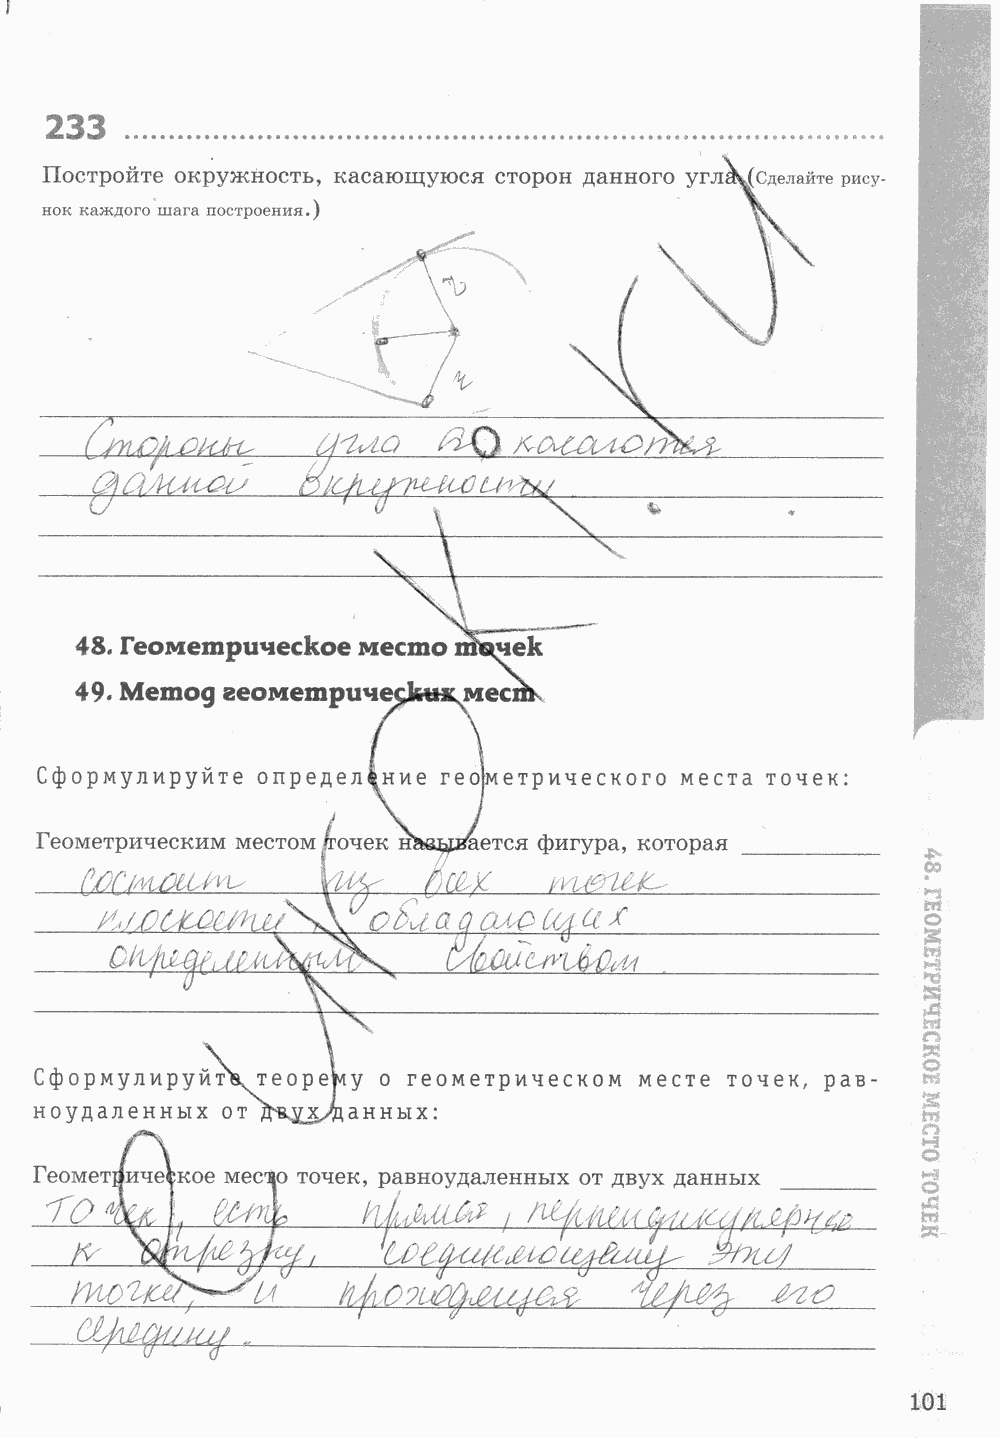 233
Постройте окружность, касающуюся сторон данного угла. (Сделайте рису-
нок каждого шага построения.)
r
r
Стороны угла касаются
данной окружности.
48. Геометрическое место точек
49. Метод геометрических мест
Сформулируйте определение геометрического места точек:
Геометрическим местом точек называется фигура, которая
состоит из всех точек
плоскости, обладающих
определенным свойством.
Сформулируйте теорему о геометрическом месте точек, рав-
ноудаленных от двух данных:
Геометрическое место точек, равноудаленных от двух данных
точек, есть прямая, перпендикулярная
к отрезку, соединяющему эти
точки, и проходящая через его
середину.
48. ГЕОМЕТРИЧЕСКОЕ МЕСТО ТОЧЕК
101